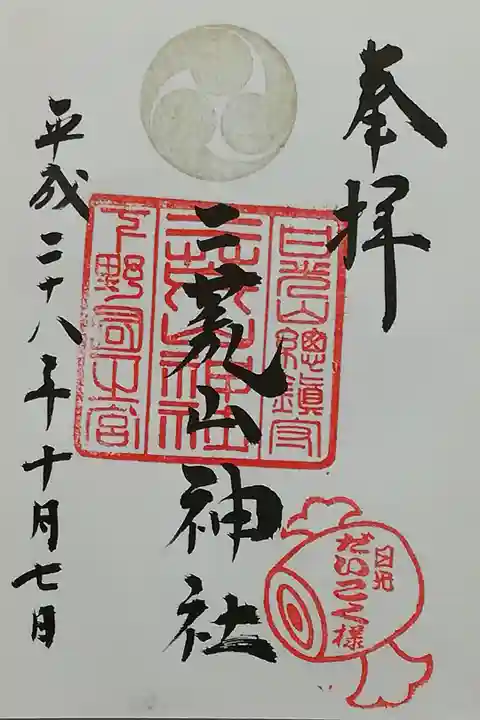 奉拝
日光山總鎮守
二荒山神社
下野国一之宮
二荒山神社
平成二十八年十月七日
日光
だいこく様